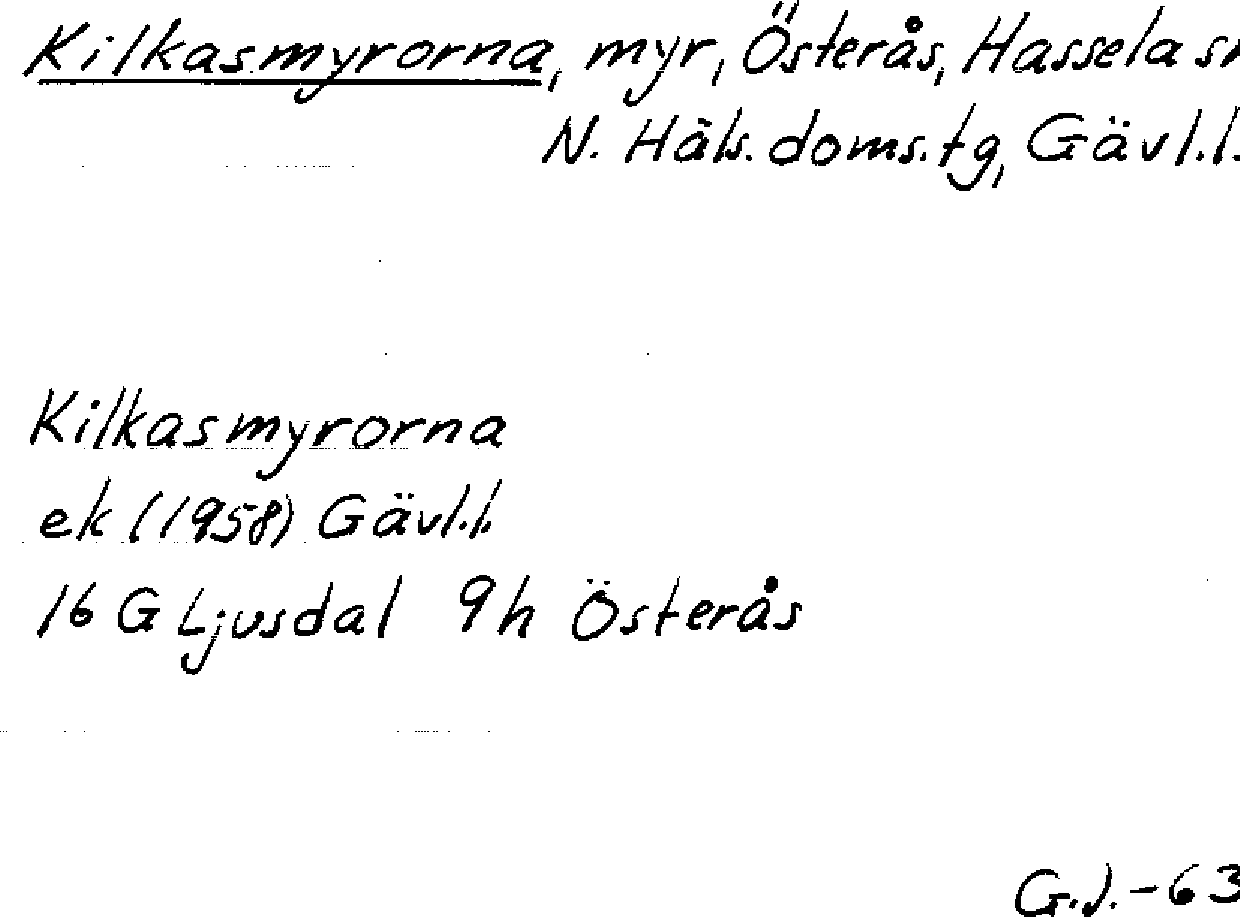 Kilkasmyrorna, myr, Österås, Hassela sn
N. Häls. doms.tg, Gävl.l.
Kilkasmyrorna
ek (1958) Gävl.l.
16 G Ljusdal 9h Österås
G.J. -63